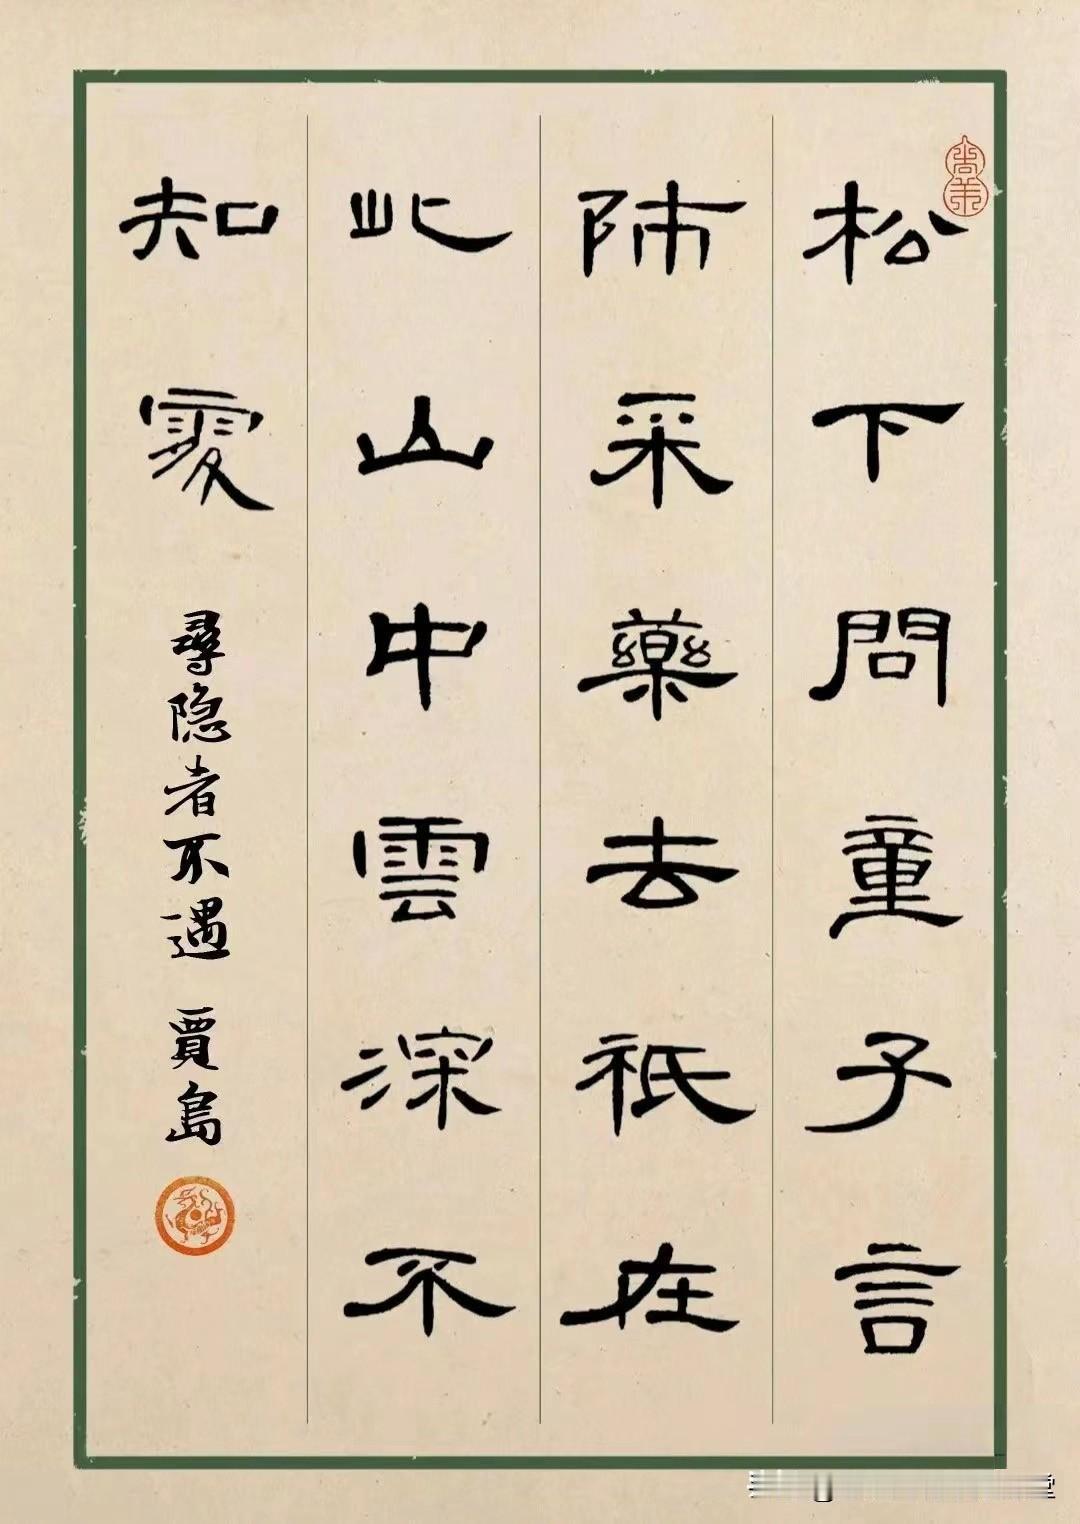 松下問童子言
師采藥去祇在
此山中雲深不
知處
尋隐者不遇 賈島
尚美